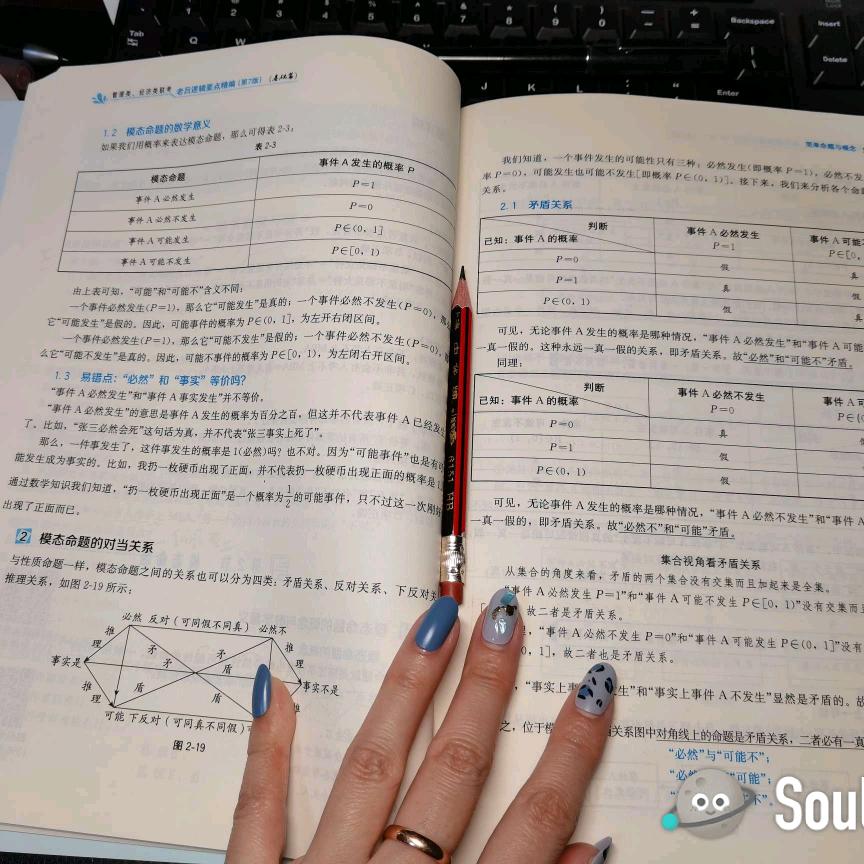 管理类、经济类联考 老吕逻辑要点精编(第7版)(基础篇)
1.2 模态命题的数学意义
如果我们用概率来表达模态命题,那么可得表2-3:
表2-3
模态命题 事件A发生的概率P
事件A必然发生 P=1
事件A必然不发生 P=0
事件A可能发生 P∈(0, 1]
事件A可能不发生 P∈[0, 1)
由上表可知,“可能”和“可能不”含义不同:
一个事件必然发生(P=1),那么它“可能发生”是真的;一个事件必然不发生(P=0),那
它“可能发生”是假的。因此,可能事件的概率为P∈(0, 1],为左开右闭区间。
一个事件必然发生(P=1),那么它“可能不发生”是假的;一个事件必然不发生(P=0),
么它“可能不发生”是真的。因此,可能不事件的概率为P∈[0, 1),为左闭右开区间。
1.3 易错点:“必然”和“事实”等价吗?
“事件A必然发生”和“事件A事实发生”并不等价。
“事件A必然发生”的意思是事件A发生的概率为百分之百,但这并不代表事件A已经发生
了。比如,“张三必然会死”这句话为真,并不代表“张三事实上死了”。
那么,一件事发生了,这件事发生的概率是1(必然)吗?也不对。因为“可能事件”也是有可
能发生成为事实的。比如,我扔一枚硬币出现了正面,并不代表扔一枚硬币出现正面的概率是1
通过数学知识我们知道,“扔一枚硬币出现正面”是一个概率为1/2的可能事件,只不过这一次刚
出现了正面而已。
2 模态命题的对当关系
与性质命题一样,模态命题之间的关系也可以分为四类:矛盾关系、反对关系、下反对关
推理关系,如图2-19所示:
必然 反对(可同假不同真) 必然不
推理 矛 矛 推理
事实是 事实不是
推理 盾 盾 推
可能 下反对(可同真不同假)
图2-19
简单命题与概念
我们知道,一个事件发生的可能性只有三种:必然发生(即概率P=1),必然不发
率P=0),可能发生也可能不发生[即概率P∈(0, 1)]。接下来,我们来分析各个命
关系。
2.1 矛盾关系
判断 事件A必然发生 事件A可能
已知:事件A的概率 P=1 P∈[0,
P=0 假 真
P=1 真 假
P∈(0, 1) 假 真
可见,无论事件A发生的概率是哪种情况,“事件A必然发生”和“事件A可能
一真一假的。这种永远一真一假的关系,即矛盾关系。故“必然”和“可能不”矛盾。
同理:
判断 事件A必然不发生 事件A可
已知:事件A的概率 P=0 P∈(0
P=0 真
P=1 假
P∈(0, 1) 假
可见,无论事件A发生的概率是哪种情况,“事件A必然不发生”和“事件A
一真一假的,即矛盾关系。故“必然不”和“可能”矛盾。
集合视角看矛盾关系
从集合的角度来看,矛盾的两个集合没有交集而且加起来是全集。
“事件A必然发生P=1”和“事件A可能不发生P∈[0, 1)”没有交集而且
[ 故二者是矛盾关系。
,“事件A必然不发生P=0”和“事件A可能发生P∈(0, 1]”没有
0, 1],故二者也是矛盾关系。
,“事实上事 生”和“事实上事件A不发生”显然是矛盾的。故
之,位于模 关系图中对角线上的命题是矛盾关系,二者必有一真
“必然”与“可能不”;
“必 可能”;
不”。
Tab
Q
W
1
2
3
4
5
6
7
8
9
0
Backspace
Insert
Delete
Enter
6151 HB
Soul